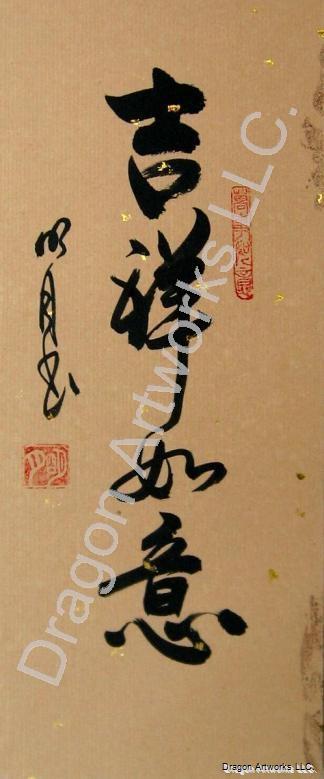 吉祥如意
明月书
Dragon Artworks LLC.
Dragon Artworks LLC.